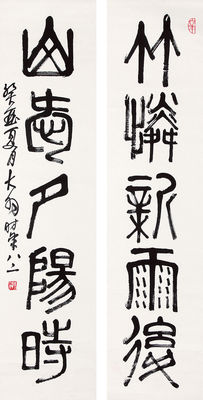 竹憐新雨後
山愛夕陽時
癸亥夏月大時年八二